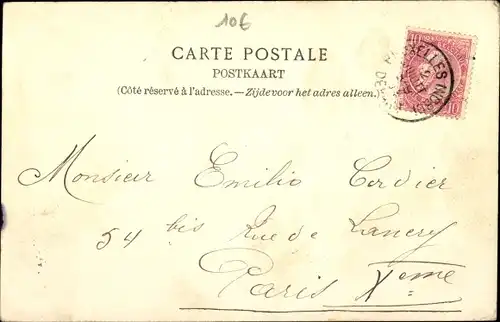 10€
CARTE POSTALE
POSTKAART
(Côté réservé à l'adresse. — Zijde voor het adres alleen.)
10 10
BRUXELLES
Monsieur Emilio Cordier
54 bis Rue de Lancry
Paris Xeme